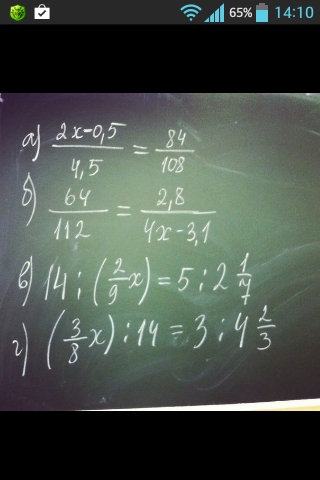 65% 14:10
а) (2x-0,5)/4,5 = 84/108
б) 64/112 = 2,8/(4x-3,1)
в) 14 : (2/9 x) = 5 : 2 1/7
г) (3/8 x) : 14 = 3 : 4 2/3